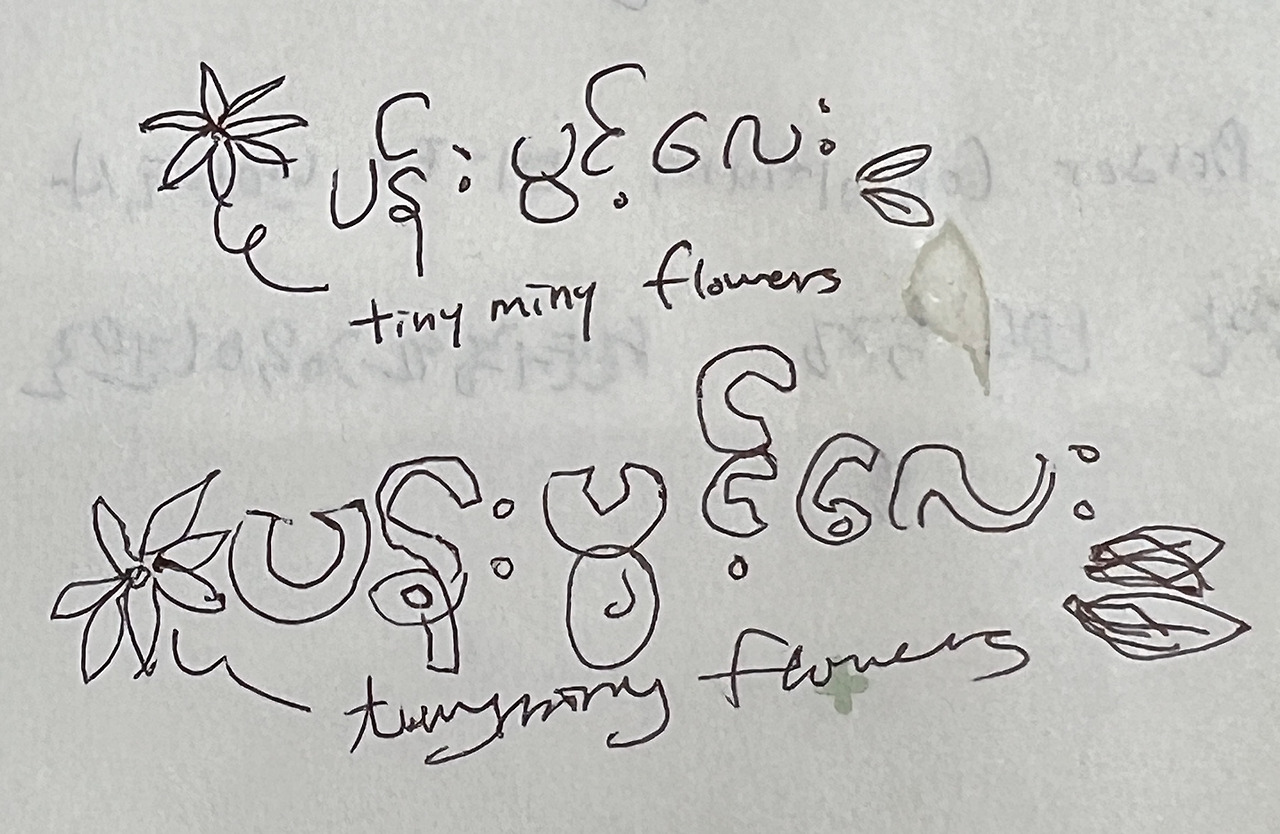 ပန်းပွင့်လေး
tiny miny flowers
ပန်းပွင့်လေး
tinyminy flowers